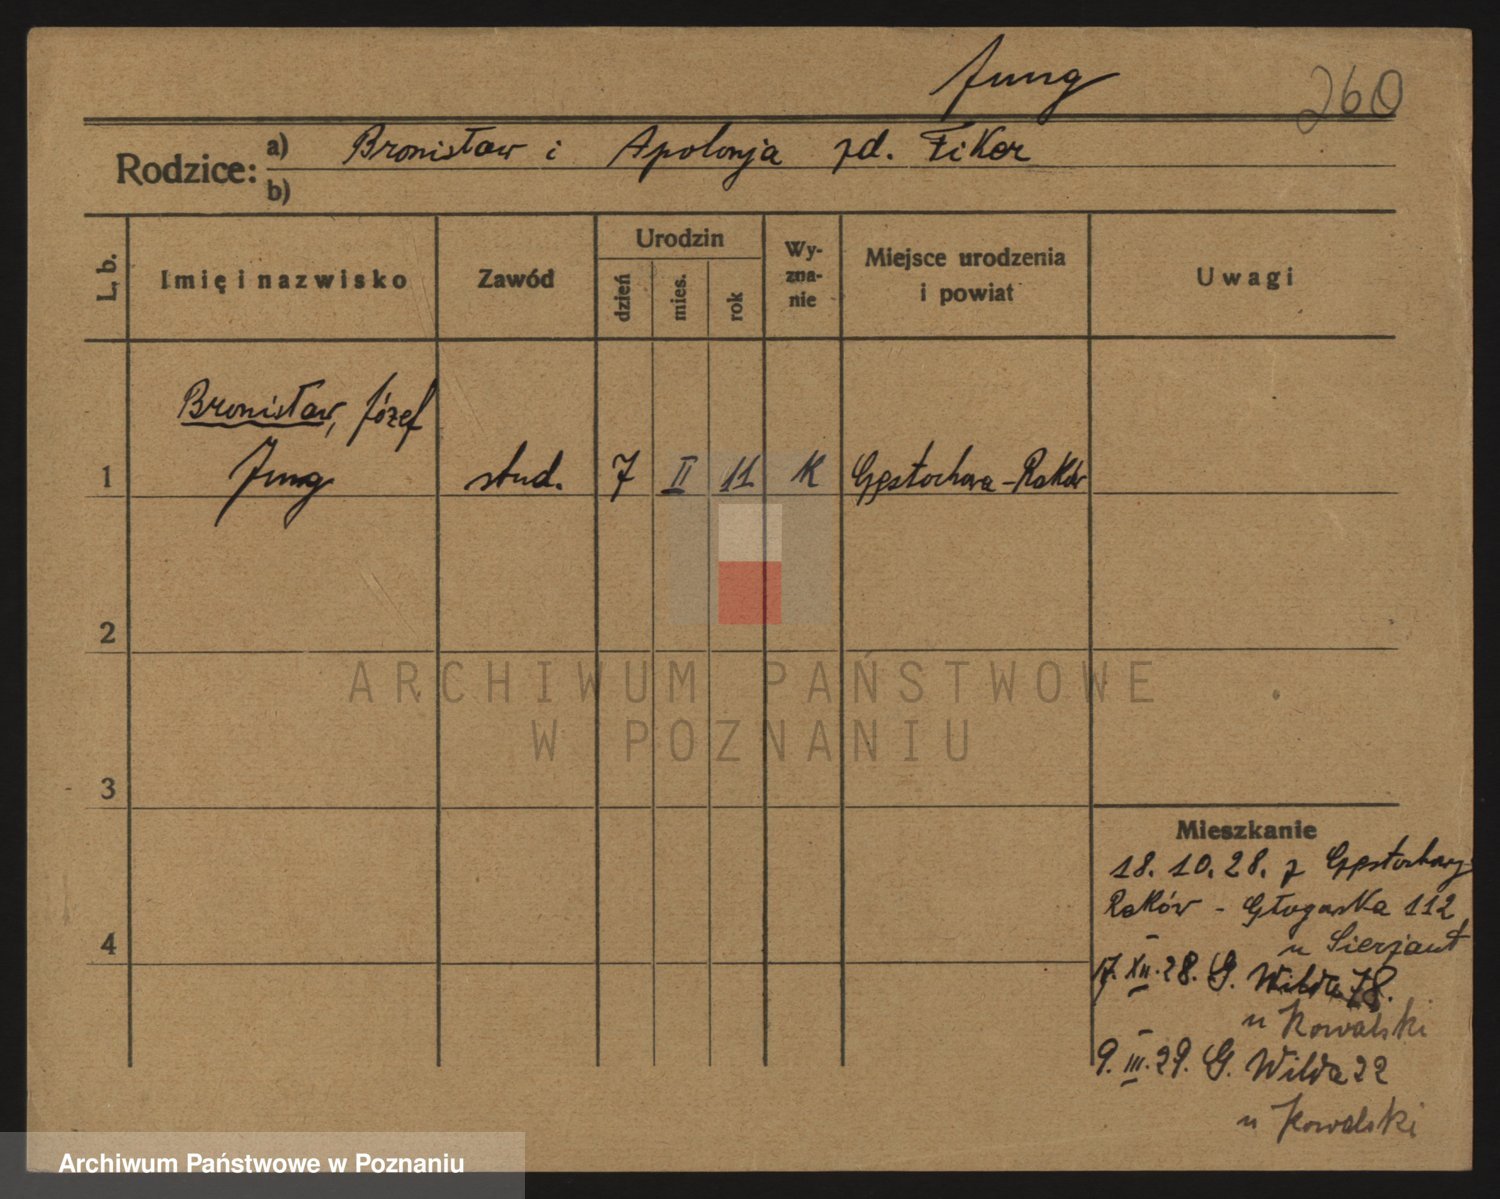 Jung
260
Rodzice:
a) Bronisław i Apolonja zd. Fiker
b)
L. b.
Imię i nazwisko
Zawód
Urodzin
dzień
mies.
rok
Wy-
zna-
nie
Miejsce urodzenia
i powiat
Uwagi
Bronisław, Józef
1 Jung stud. 7 II 11 K Częstochowa-Raków
2
3
4
ARCHIWUM PAŃSTWOWE
W POZNANIU
Mieszkanie
18. 10. 28. z Częstochowy-
Raków - Głogowska 112
u Sierżant
17. XII. 28. G. Wilda 78.
u Kowalski
9. III. 29. G. Wilda 22
u Kowalski
Archiwum Państwowe w Poznaniu